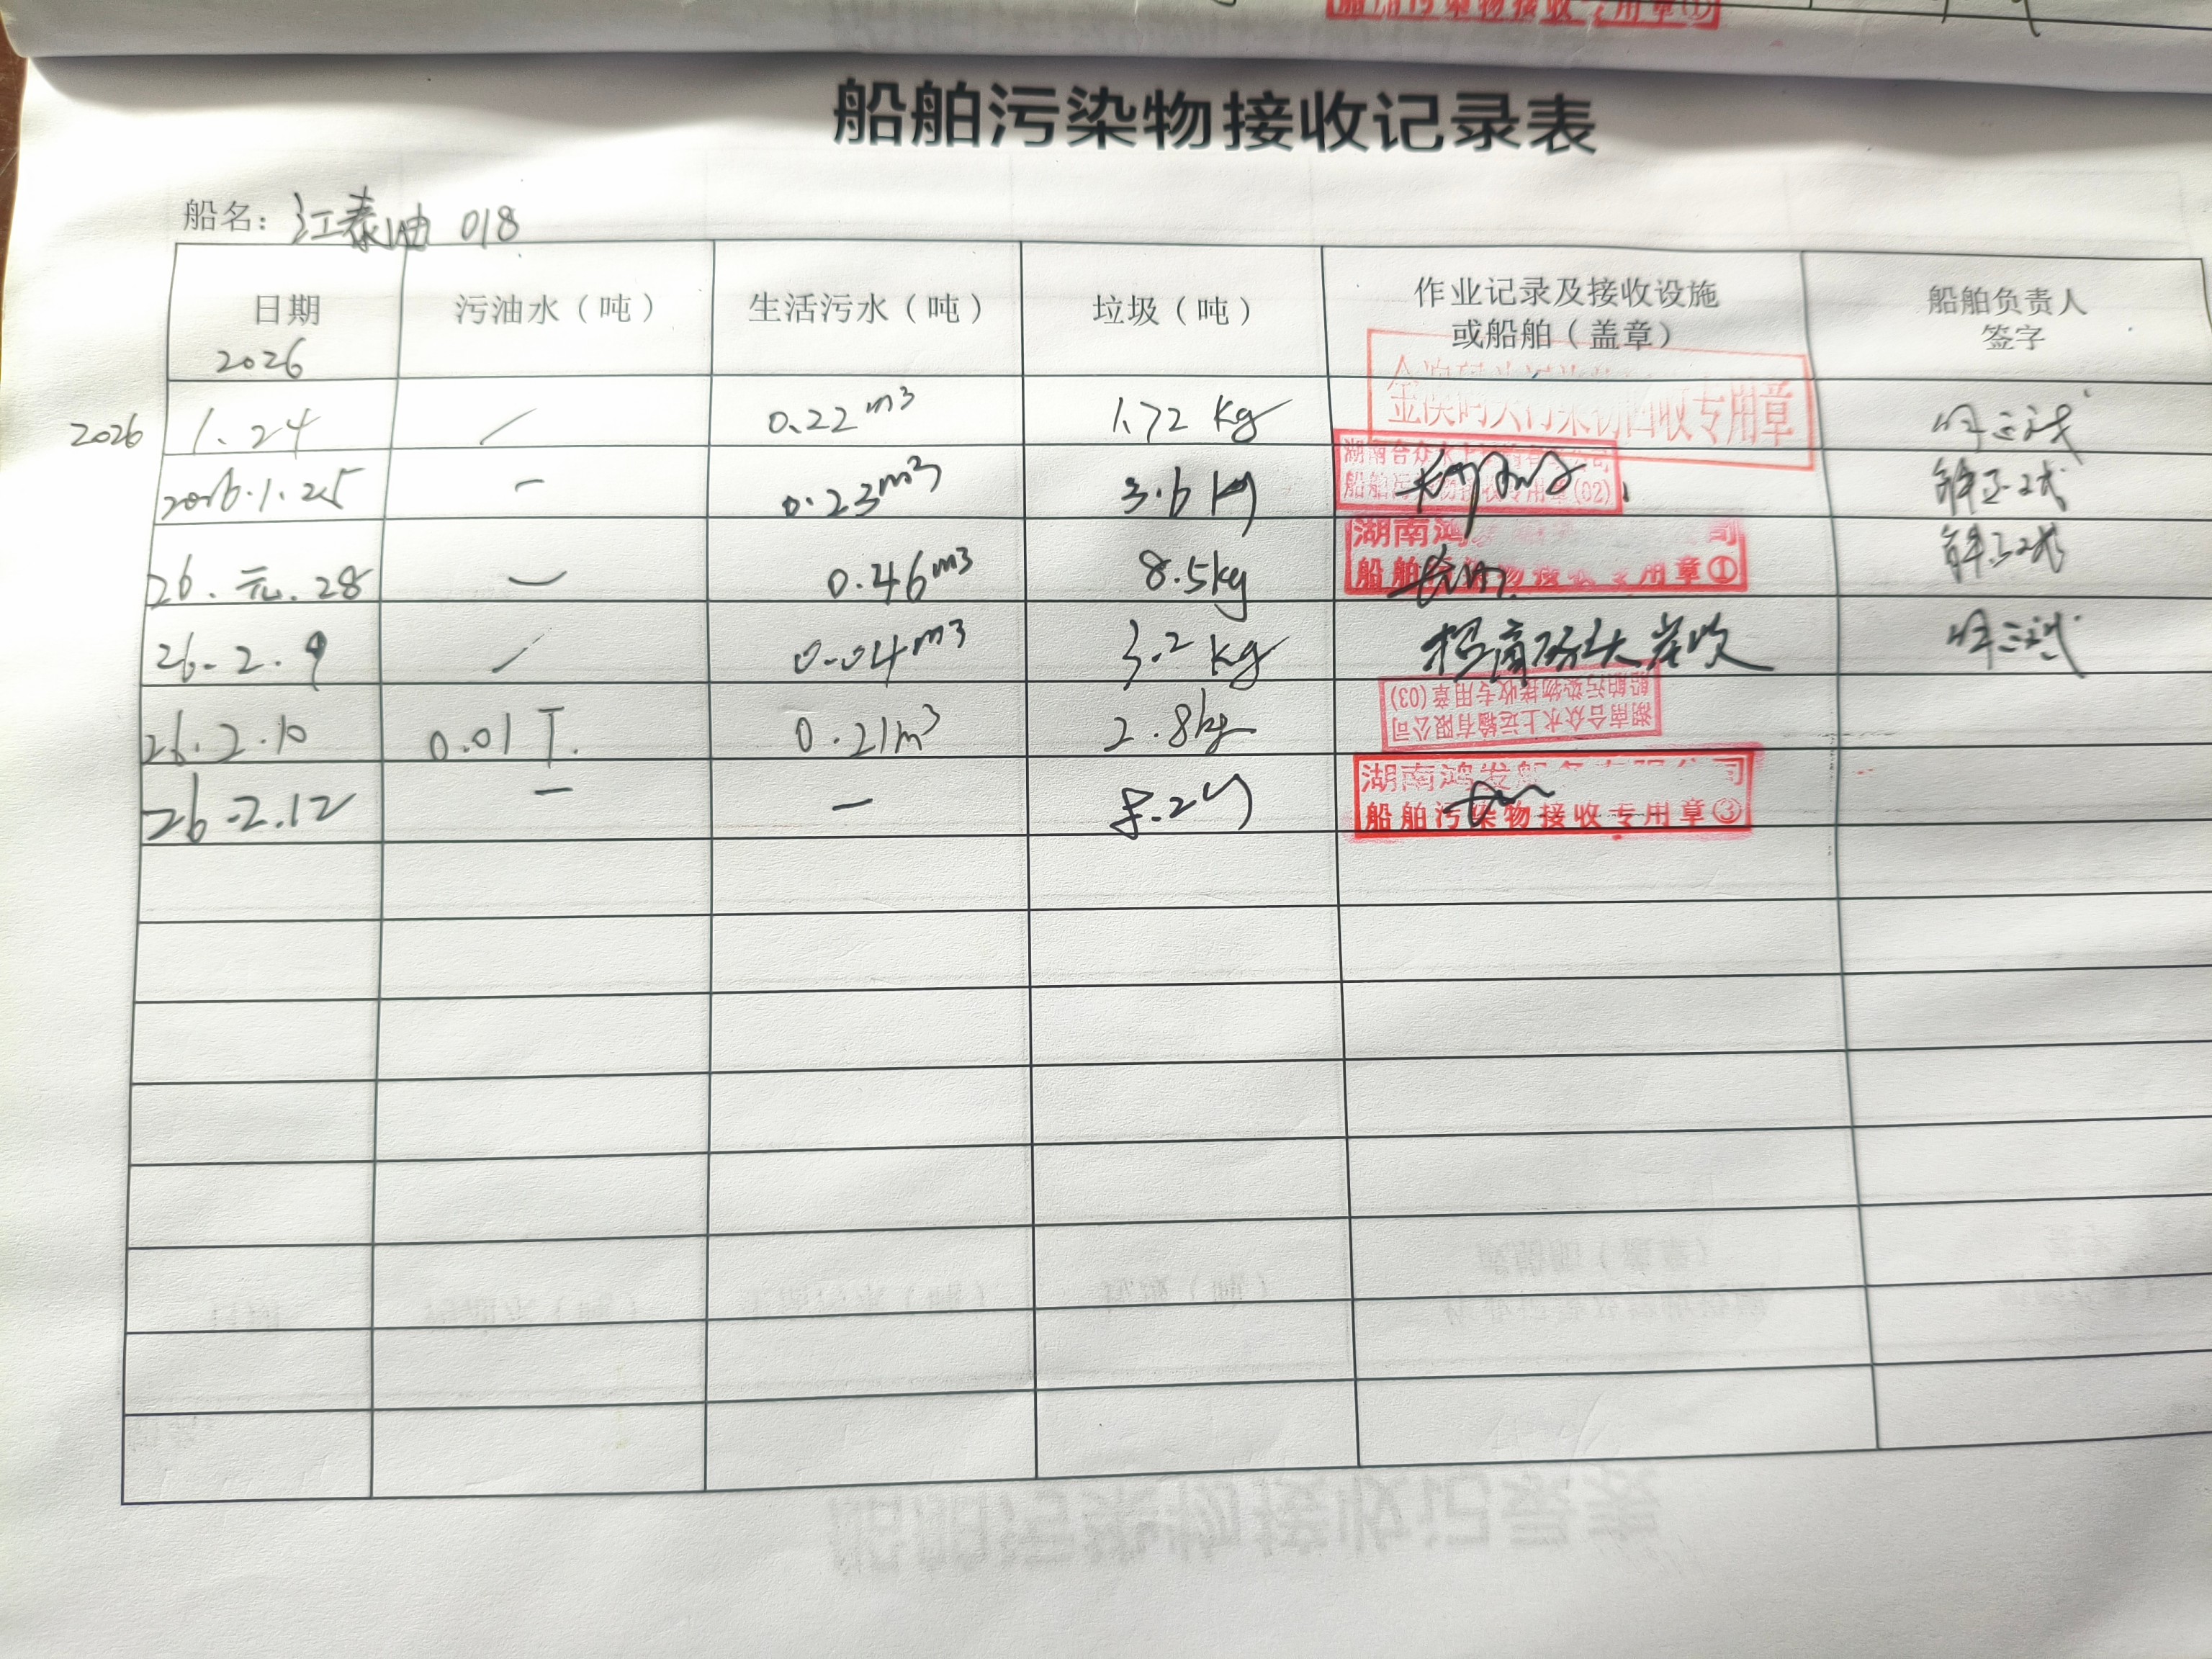 船舶污染物接收专用章①
船舶污染物接收记录表
船名：江泰油 018
日期 2026 污油水（吨） 生活污水（吨） 垃圾（吨） 作业记录及接收设施或船舶（盖章） 船舶负责人签字
2026 1.24 / 0.22 m³ 1.72 Kg 专用章
2026.1.25 — 0.23 m³ 3.6 kg 湖南合众水上 公司 船舶污染物接收专用章(02)
26.元.28 — 0.46 m³ 8.5kg 湖南鸿 司 船舶污染物接收专用章①
26.2.9 / 0.04 m³ 3.2 kg 招商码头岸收
26.2.10 0.01 T. 0.21m³ 2.8kg 湖南合众水上运输有限公司 船舶污染物接收专用章(03)
26.2.12 — — 8.2 湖南鸿发船务有限公司 船舶污染物接收专用章③